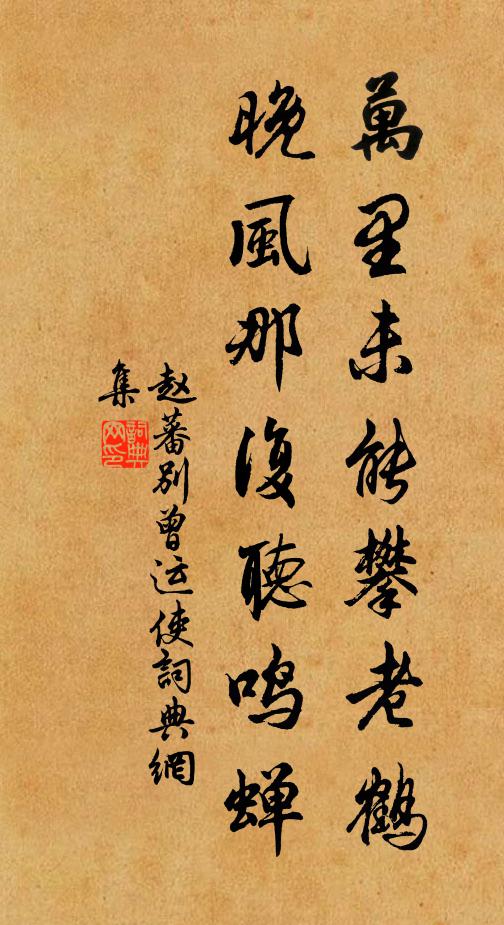 萬里未能攀老鶴
晚風那復聽鳴蝉
赵蕃别曾运使詞典網
集
詞典网印